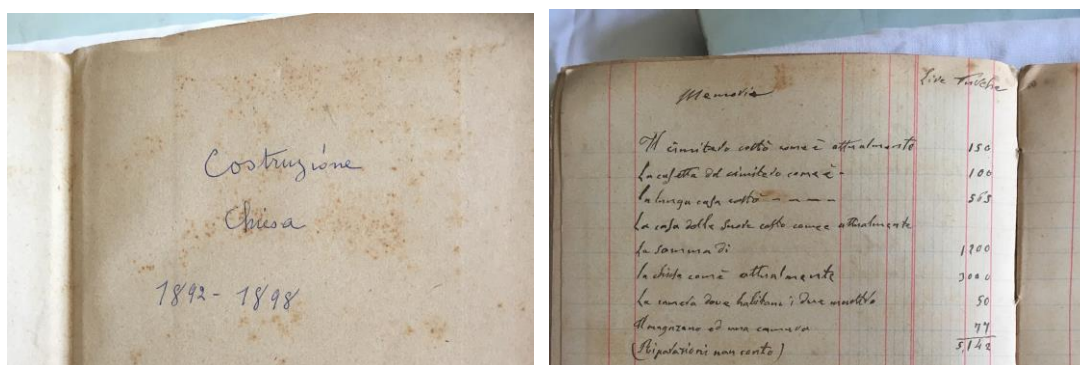 Costruzióne
Chiesa
1892 - 1898
Memorie Lire Turche
Il cimitero costò come è attualmente 150
La casetta del cimitero come è - 100
La lunga casa costò - - - - 565
La casa delle Suore costò come è attualmente
La somma di 1200
La chiesa com'è attualmente 3000
La camera dove habitano i due 50
Il magazeno ed una camera 77
(Riparazioni non conto) 5,142